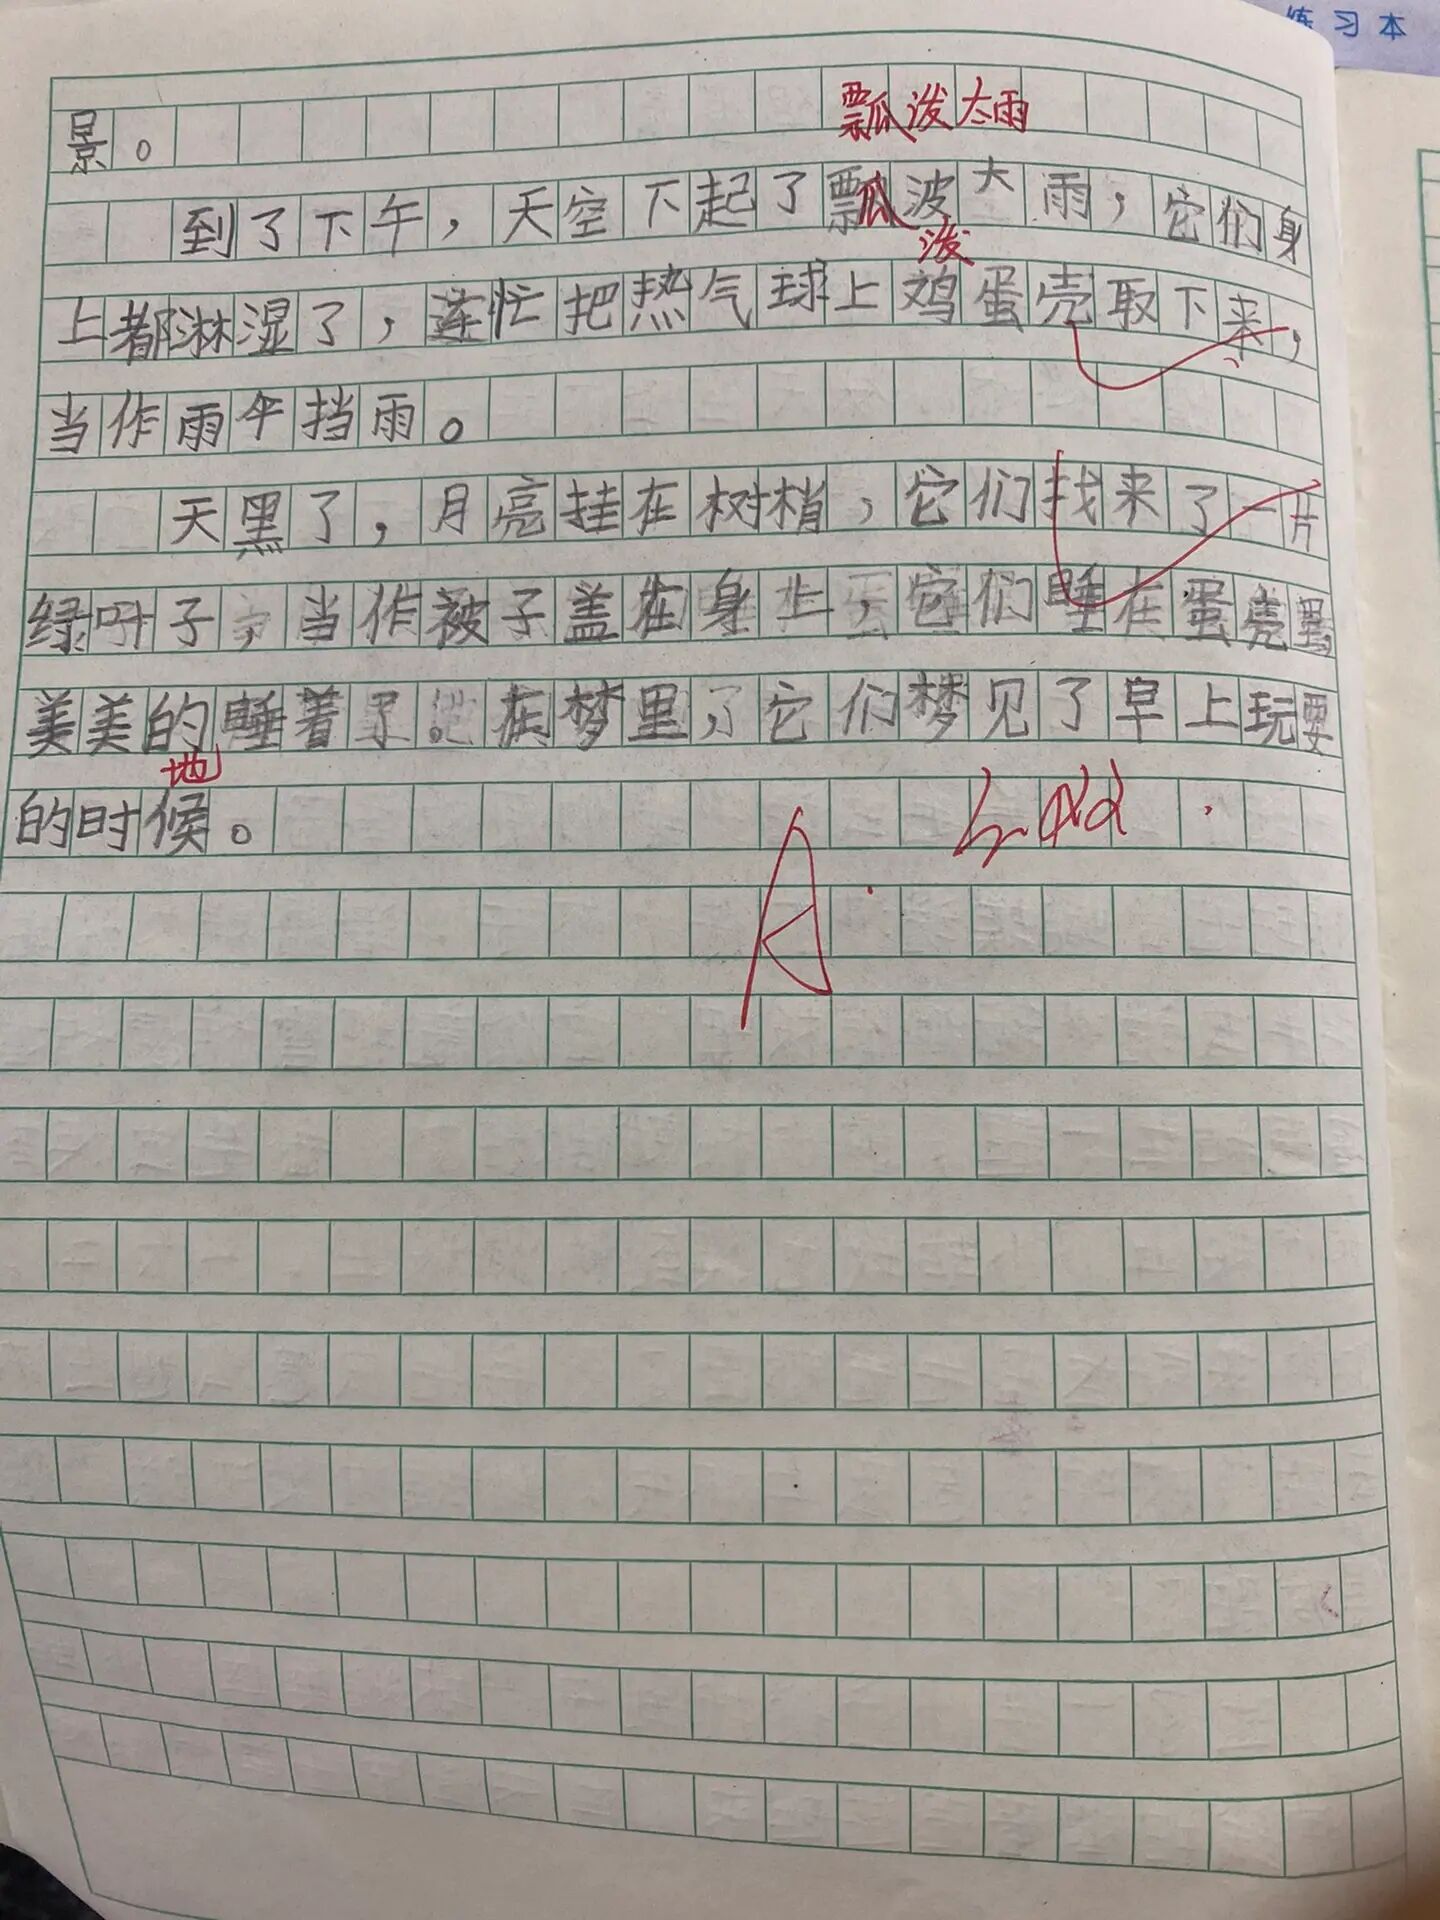 练习本
瓢泼大雨
景。
到了下午，天空下起了瓢波大雨，它们身
泼
上都淋湿了，莲忙把热气球上鸡蛋壳取下来，
当作雨伞挡雨。
天黑了，月亮挂在树梢，它们找来了一片
绿叶子，当作被子盖在身上，它们睡在蛋壳里，
美美的睡着了。在梦里，它们梦见了早上玩耍
地
的时候。
A